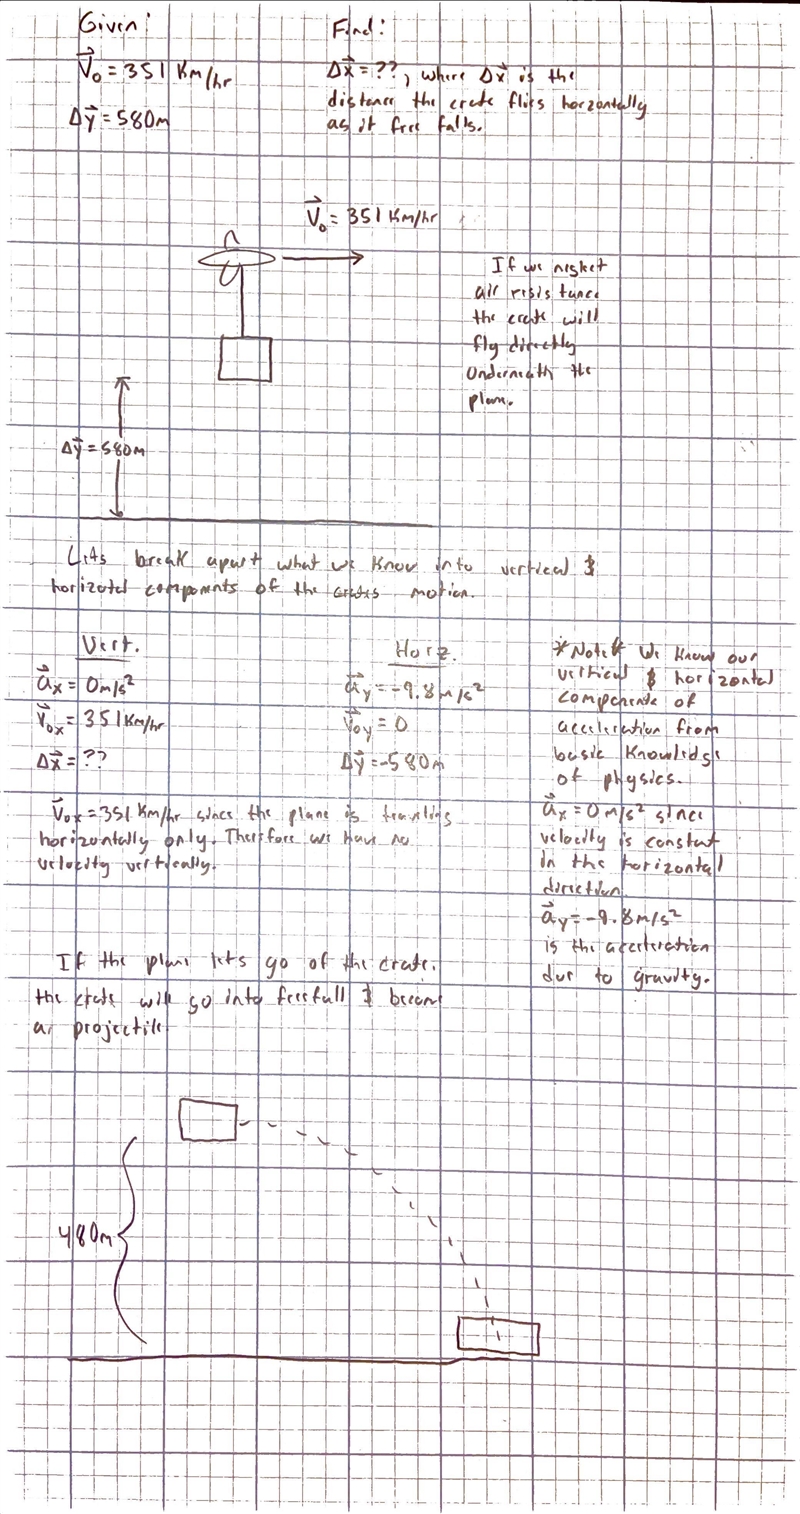 Given:
V₀ = 351 Km/hr
Δy = 580m
Find:
Δx = ??, where Δx is the
distance the crate flies horzontally
as it free falls.
V₀ = 351 Km/hr
If we neglet
air resistance
the crate will
fly directly
Underneath the
plane.
Δy = 580m
Lets break apart what we know into vertical &
horizotal components of the crates motion.
Vert.
aₓ = 0m/s²
V₀ₓ = 351 Km/hr
Δx = ??
Horz.
a_y = -9.8m/s²
V₀y = 0
Δy = -580m
*Note* We know our
vertical & horizontal
components of
acceleration from
basic knowledge
of physics.
aₓ = 0m/s² since
velocity is constat
in the horizontal
direction.
a_y = -9.8m/s²
is the acceleration
due to gravity.
V₀ₓ = 351 Km/hr since the plane is traveling
horizontally only. Therefore we have no
velocity vertically.
If the plane lets go of the crate.
the crate will go into freefall & become
a projectile
480m